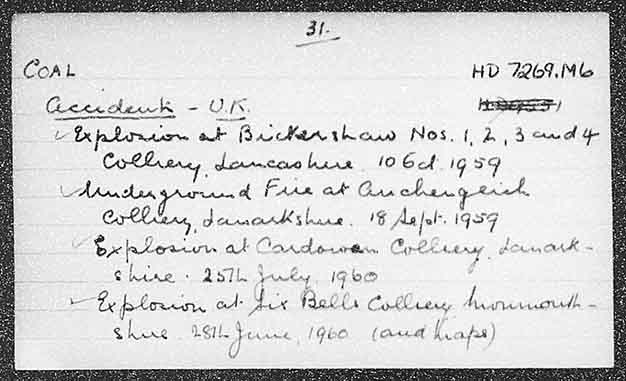 31.
COAL HD 7269.M6
Accidents - U.K.
✓ Explosion at Bickershaw Nos. 1, 2, 3 and 4
Colliery, Lancashire. 10 Oct. 1959
✓ Underground Fire at Auchengeich
Colliery, Lanarkshire. 18 Sept. 1959
✓ Explosion at Cardowan Colliery, Lanark-
shire. 25th July, 1960
✓ Explosion at Six Bells Colliery Monmouth-
shire. 28th June, 1960 (and maps)